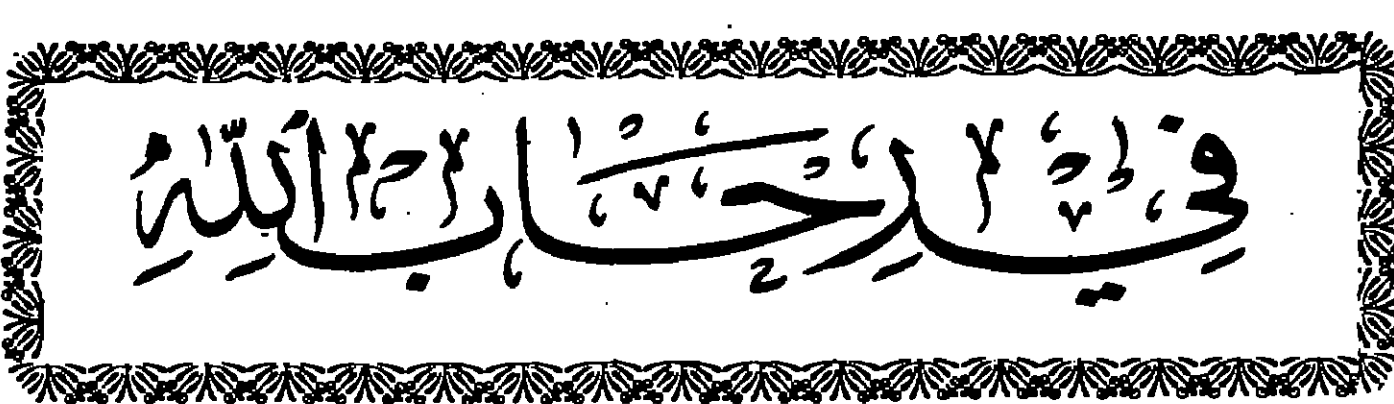 في رِحَابِ اللَّهِ